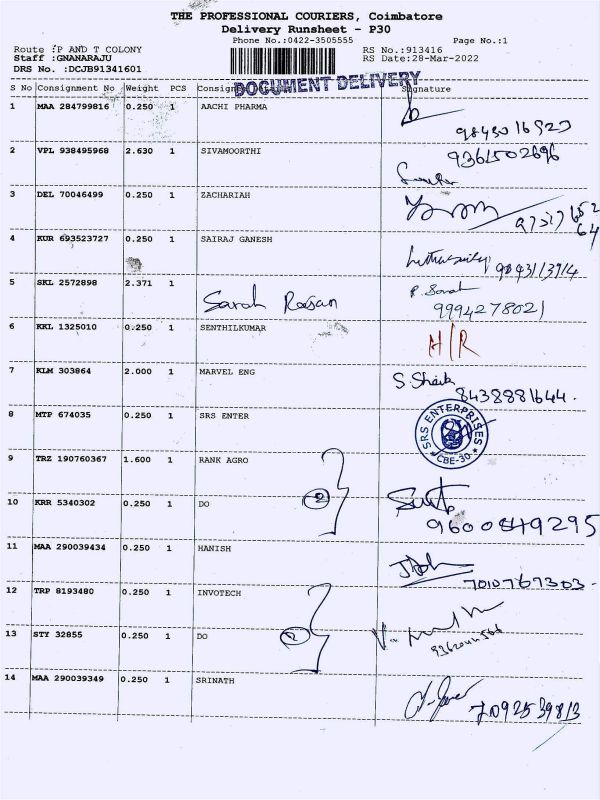 THE PROFESSIONAL COURIERS, Coimbatore
Delivery Runsheet - P30
Phone No.:0422-3505555
Page No.:1
Route :P AND T COLONY
RS No.:913416
Staff :GNANARAJU
RS Date:28-Mar-2022
DRS No. :DCJB91341601
DOCUMENT DELIVERY
S No Consignment No Weight PCS Signature
1 MAA 284799816 0.250 1 AACHI PHARMA
2 VPL 938495968 2.630 1 SIVAMOORTHI
9361502696
3 DEL 70046499 0.250 1 ZACHARIAH
4 KUR 693523727 0.250 1 SAIRAJ GANESH
5 SKL 2572898 2.371 1 Sarah Rajan
9994278021
6 KKL 1325010 0.250 1 SENTHILKUMAR H/R
7 KLM 303864 2.000 1 MARVEL ENG S. Shaik
8438881644.
8 MTP 674035 0.250 1 SRS ENTER SRS ENTERPRISES CBE-30
9 TRZ 190760367 1.600 1 RANK AGRO
2
10 KRR 5340302 0.250 1 DO
9600849295
11 MAA 290039434 0.250 1 HANISH
7010767303.
12 TRP 8193480 0.250 1 INVOTECH
2
13 STY 32855 0.250 1 DO
14 MAA 290039349 0.250 1 SRINATH
7092539813